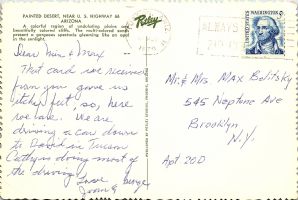 PAINTED DESERT, NEAR U. S. HIGHWAY 66
ARIZONA
A colorful region of undulating plains and
beautifully colored cliffs. The multi-colored sands
present a gorgeous spectacle gleaming like an opal
in the sunlight.
Petley
ALWAYS
UNITED STATES
WASHINGTON 5¢
Dear Min & Max
That card we received
from you gave us
itchy feet, so, here
we are. We are
driving a car down
to David in Tucson
Cathy is doing most of
the driving
Love George
Mr. & Mrs. Max Belitsky
545 Neptune Ave
Brooklyn
N.Y.
Apt 20D